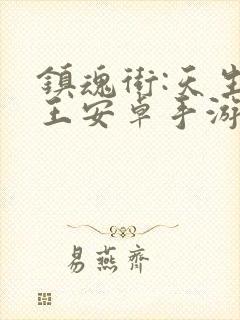 鎮魂街:天生
王安卓手游
易燕齊